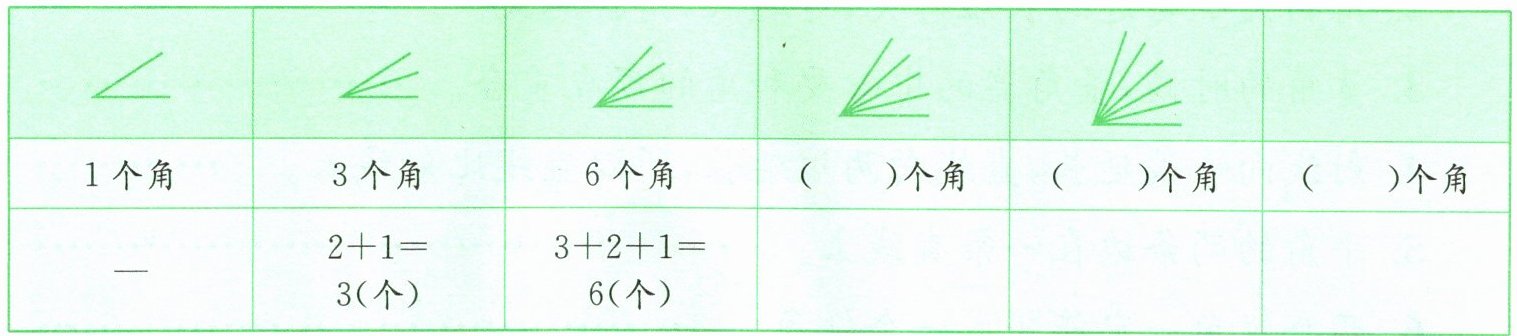 1个角 3个角 6个角 ( )个角 ( )个角 ( )个角
— 2+1= 3+2+1=
3(个) 6(个)